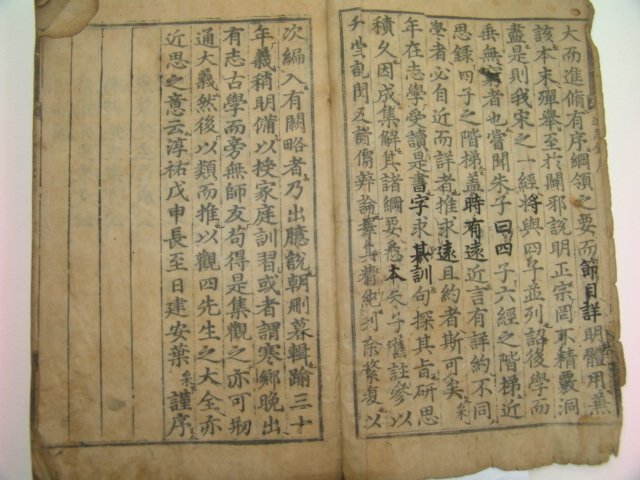 大而進脩有序綱領之要而節目詳明體用兼
該本末殫舉至於闢邪說明正宗罔不精覈洞
盡是則我宋之一經將與四子並列詔後學而
垂無窮者也嘗聞朱子曰四子六經之階梯近
思錄四子之階梯蓋時有遠近言有詳約不同
學者必自近而詳者推求遠且約者斯可矣采
年在志學受讀是書字求其訓句探其旨研思
積久因成集解其諸綱要悉本朱子舊註參以
升堂記聞及諸儒辯論擇其精純刊除繁復以
次編入有闕略者乃出臆說朝刪暮輯踰三十
年義稍明備以授家庭訓習或者謂寒鄉晚出
有志古學而旁無師友苟得是集觀之亦可刱
通大義然後以類而推以觀四先生之大全亦
近思之意云淳祐戊申長至日建安葉采謹序